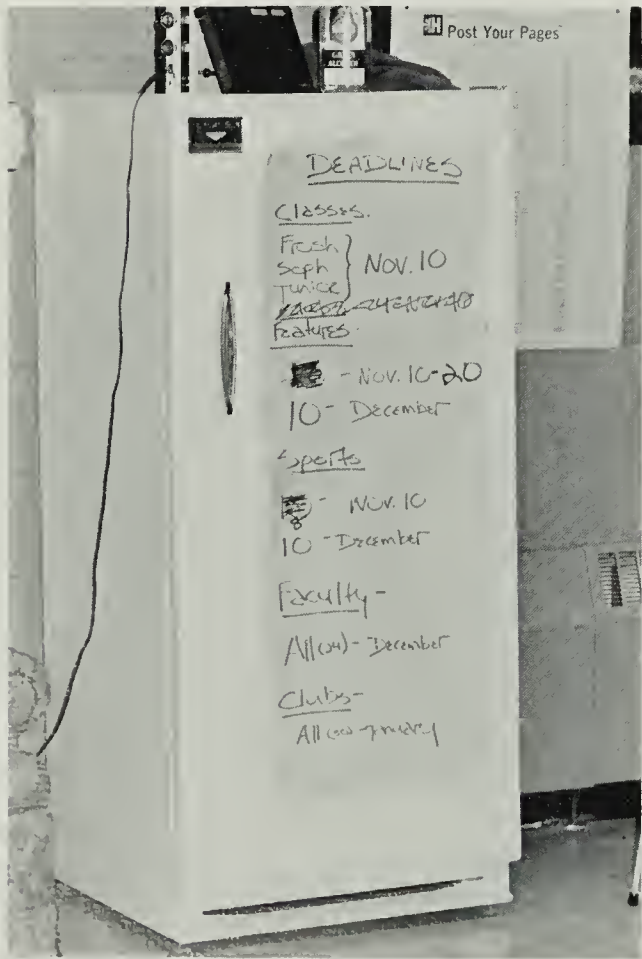 Post Your Pages
DEADLINES
Classes.
Frosh
Soph
Junior
} Nov. 10
Features.
- Nov. 10-20
10 - December
Sports
- Nov. 10
10 - December
Faculty -
All (24) - December
Clubs -
All